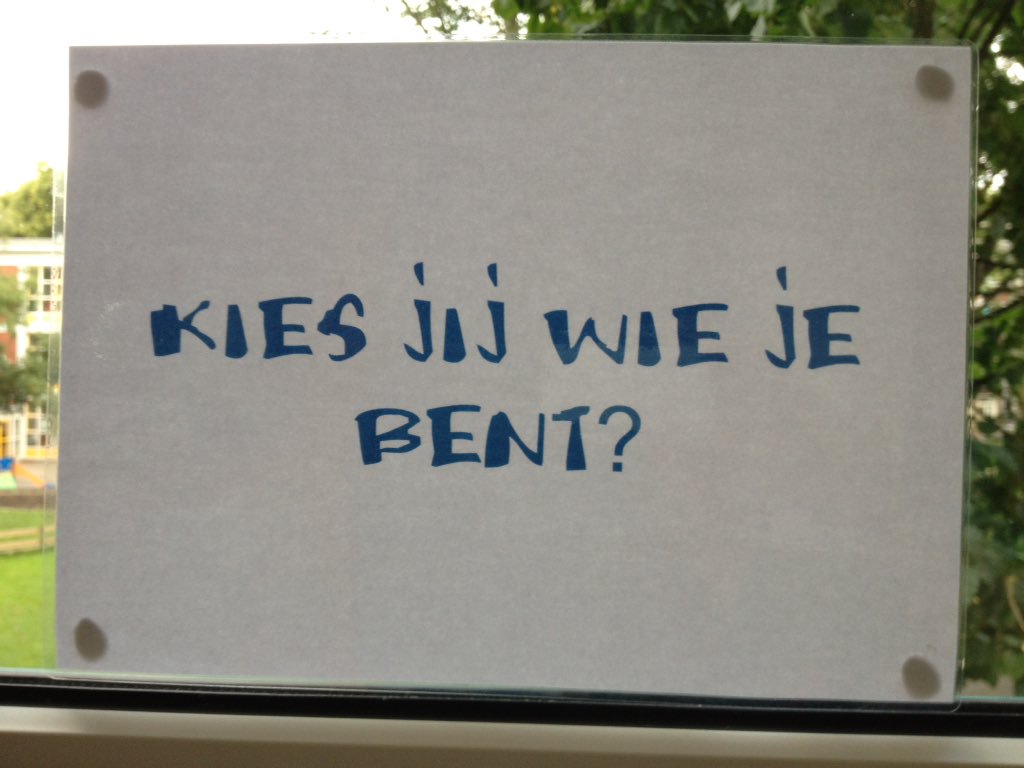 KIES JIJ WIE JE
BENT?